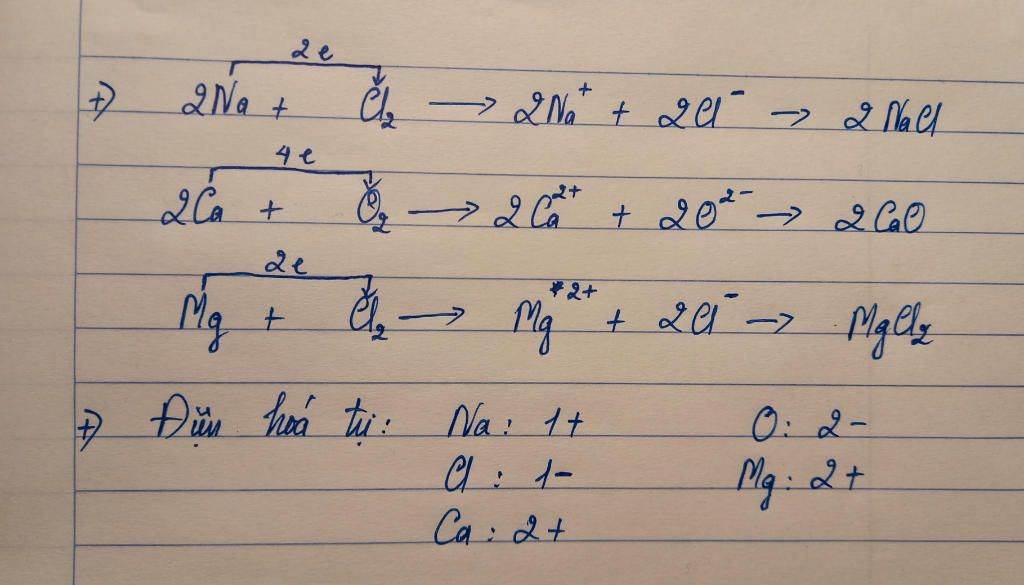 2e
+) 2Na + Cl₂ → 2Na⁺ + 2Cl⁻ → 2NaCl
4e
2Ca + O₂ → 2Ca²⁺ + 2O²⁻ → 2CaO
2e
Mg + Cl₂ → Mg²⁺ + 2Cl⁻ → MgCl₂
+) Điện hoá trị: Na: 1+ O: 2-
Cl: 1- Mg: 2+
Ca: 2+